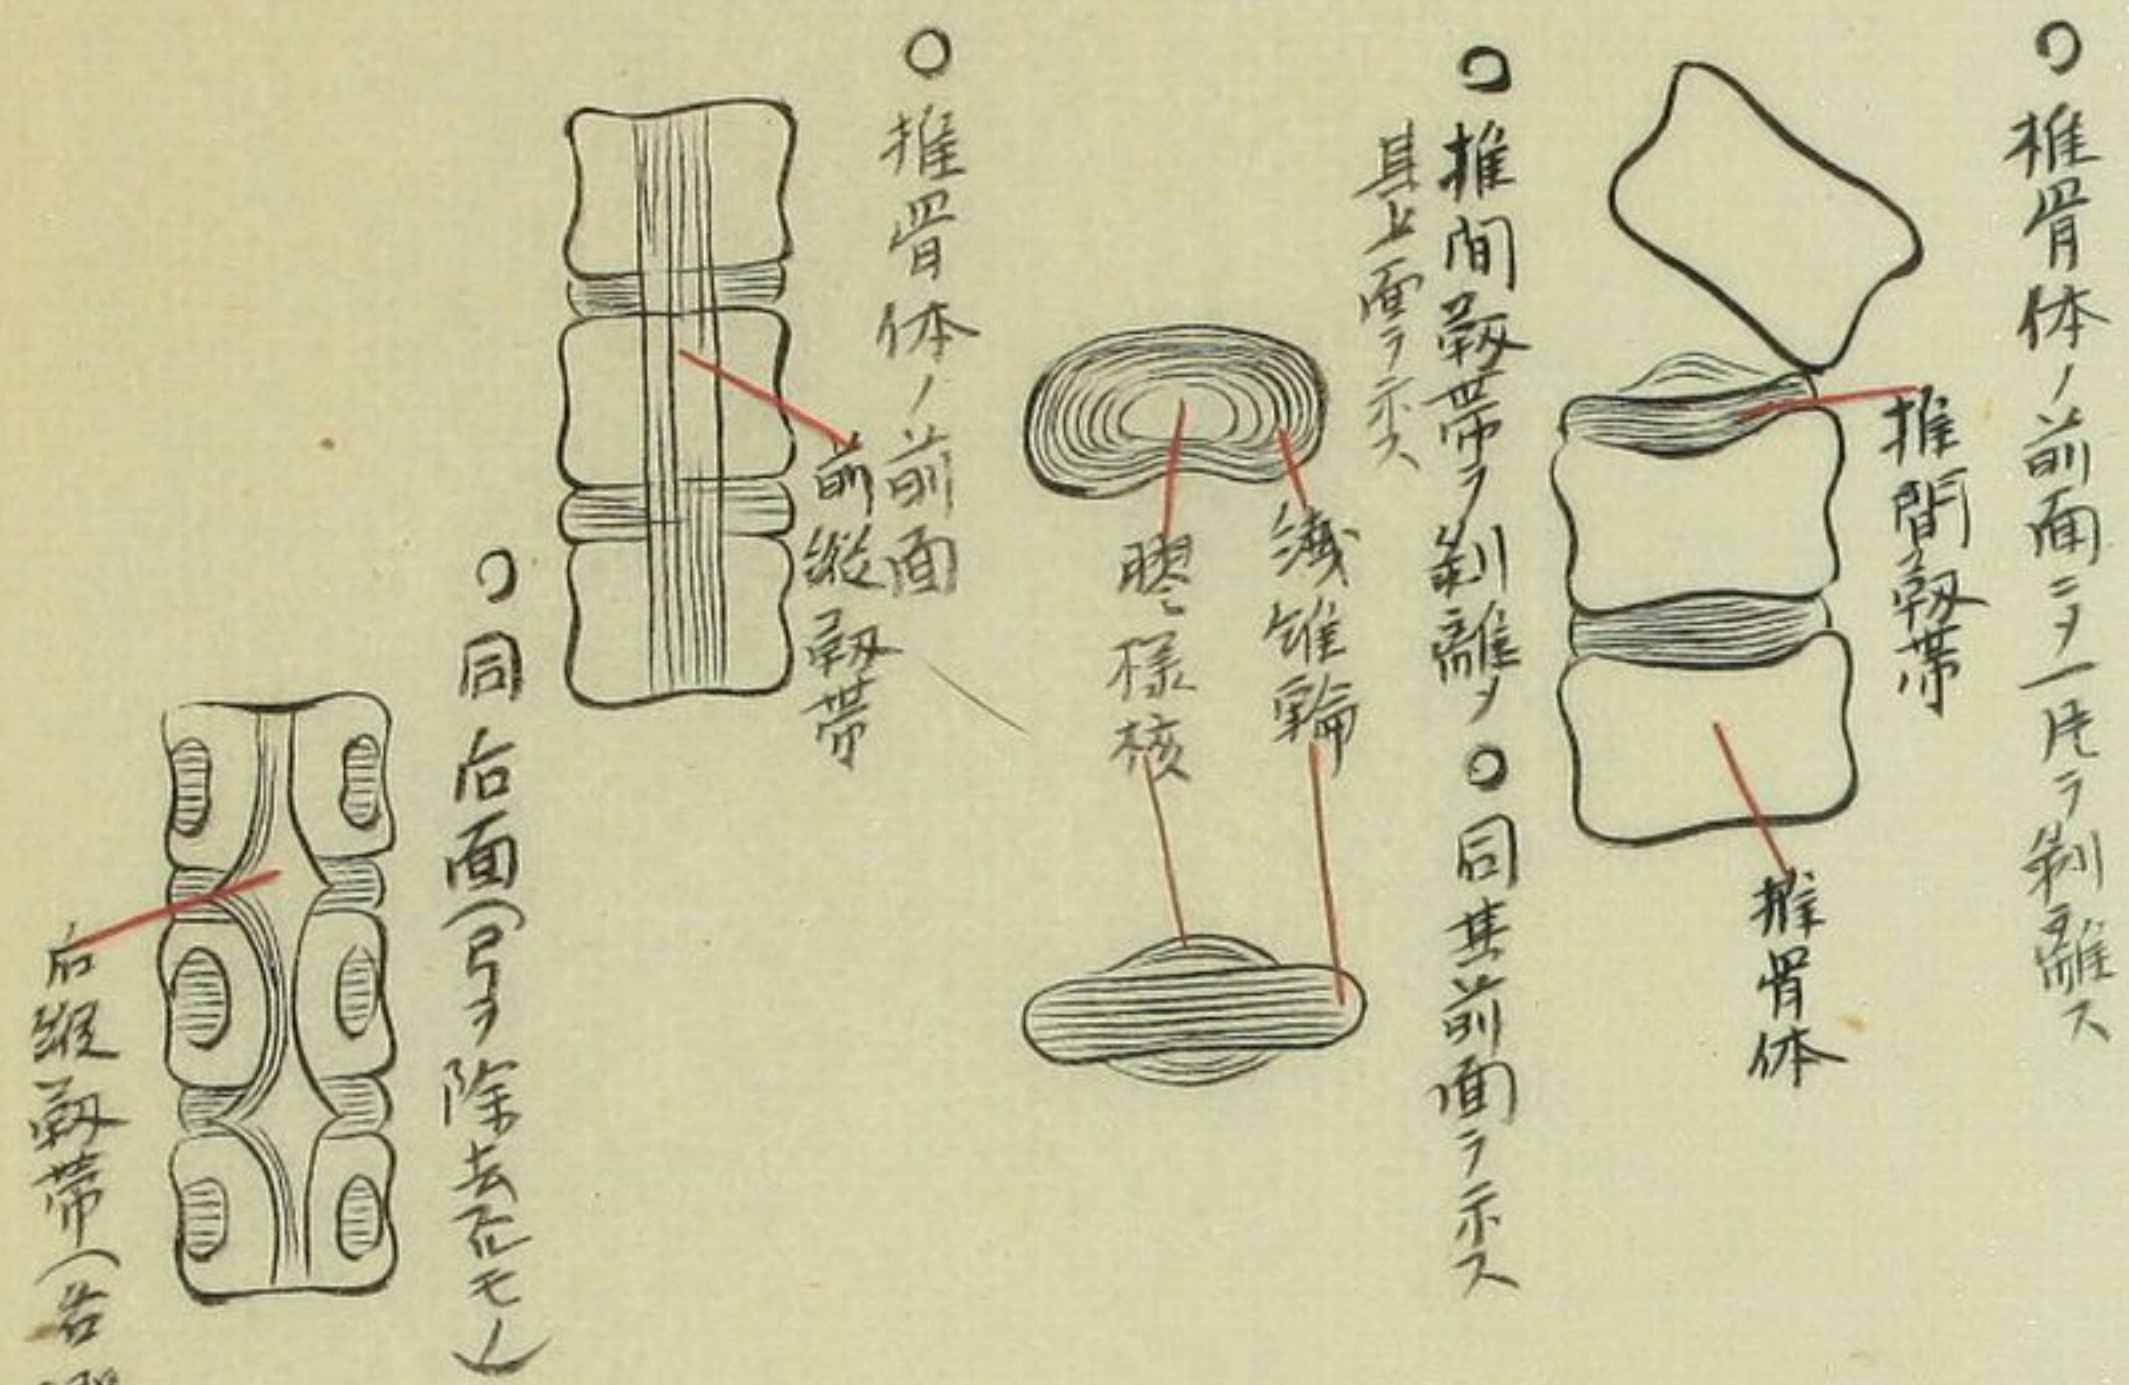 椎骨体ノ前面ニテ一片ヲ剥離ス
椎間靱帯
椎骨体
椎間靱帯ヲ剥離シ
其上面ヲ示ス
同其前面ヲ示ス
繊維輪
膠様核
椎骨体ノ前面
前縦靱帯
同后面(弓ヲ除去セルモノ)
后縦靱帯(右